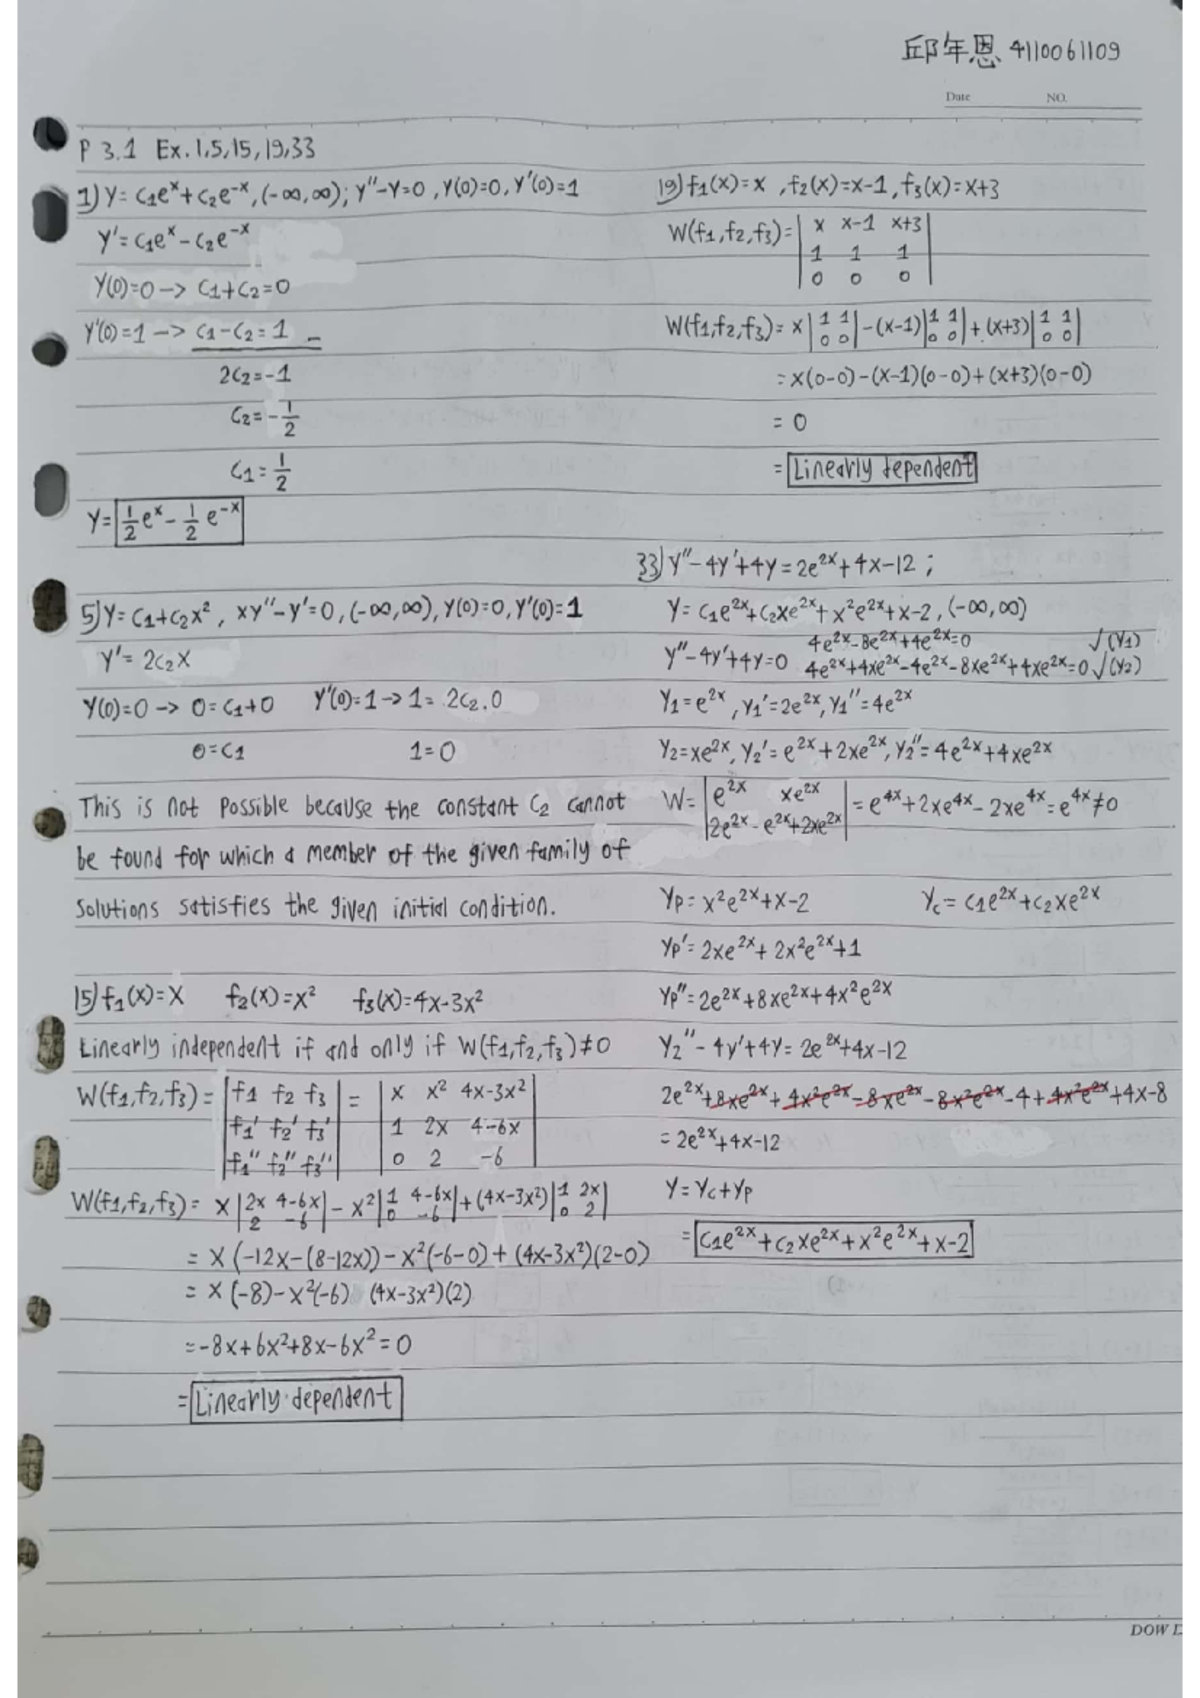 邱年恩 4110061109
Date NO.
P 3.1 Ex. 1,5,15,19,33
1) Y = C1e^x + C2e^-x, (-∞,∞); Y''-Y=0, Y(0)=0, Y'(0)=1
Y' = C1e^x - C2e^-x
Y(0)=0 -> C1+C2=0
Y'(0)=1 -> C1-C2=1 -
2C2=-1
C2=-1/2
C1=1/2
Y= 1/2 e^x - 1/2 e^-x
5) Y= C1+C2x^2, xy''-y'=0, (-∞,∞), Y(0)=0, Y'(0)=1
Y'= 2C2X
Y(0)=0 -> 0=C1+0 Y'(0)=1 -> 1= 2C2.0
0=C1 1=0
This is not possible because the constant C2 cannot
be found for which a member of the given family of
solutions satisfies the given initial condition.
15) f1(x)=X f2(x)=x^2 f3(x)=4x-3x^2
Linearly independent if and only if W(f1,f2,f3)≠0
W(f1,f2,f3) = | f1 f2 f3 | = | x x^2 4x-3x^2 |
| f1' f2' f3' | | 1 2x 4-6x |
| f1'' f2'' f3'' | | 0 2 -6 |
W(f1,f2,f3) = x |2x 4-6x| - x^2 |1 4-6x| + (4x-3x^2) |1 2x|
|2 -6| |0 -6| |0 2|
= x (-12x-(8-12x)) - x^2(-6-0) + (4x-3x^2)(2-0)
= x (-8)-x^2(-6) (4x-3x^2)(2)
=-8x+6x^2+8x-6x^2=0
= Linearly dependent
19) f1(x)=x , f2(x)=x-1, f3(x)=x+3
W(f1,f2,f3)= | x x-1 x+3 |
| 1 1 1 |
| 0 0 0 |
W(f1,f2,f3)= x |1 1| -(x-1) |1 1| + (x+3) |1 1|
|0 0| |0 0| |0 0|
= x(0-0)-(x-1)(0-0)+(x+3)(0-0)
= 0
= Linearly dependent
33) Y''-4Y'+4y=2e^2x+4x-12 ;
Y= C1e^2x+C2xe^2x+x^2e^2x+x-2, (-∞,∞)
Y''-4Y'+4y=0 4e^2x-8e^2x+4e^2x=0 √(Y1)
4e^2x+4xe^2x-4e^2x-8xe^2x+4xe^2x=0 √(Y2)
Y1=e^2x, Y1'=2e^2x, Y1''=4e^2x
Y2=xe^2x, Y2'=e^2x+2xe^2x, Y2''=4e^2x+4xe^2x
W= | e^2x xe^2x | = e^4x+2xe^4x-2xe^4x=e^4x≠0
| 2e^2x - e^2x+2xe^2x |
Yp= x^2e^2x+x-2 Yc= C1e^2x+C2xe^2x
Yp'= 2xe^2x+2x^2e^2x+1
Yp''= 2e^2x+8xe^2x+4x^2e^2x
Y2''-4y'+4Y=2e^2x+4x-12
2e^2x+8xe^2x+4x^2e^2x-8xe^2x-8x^2e^2x-4+4x^2e^2x+4x-8
= 2e^2x+4x-12
Y= Yc+Yp
= C1e^2x+C2xe^2x+x^2e^2x+x-2